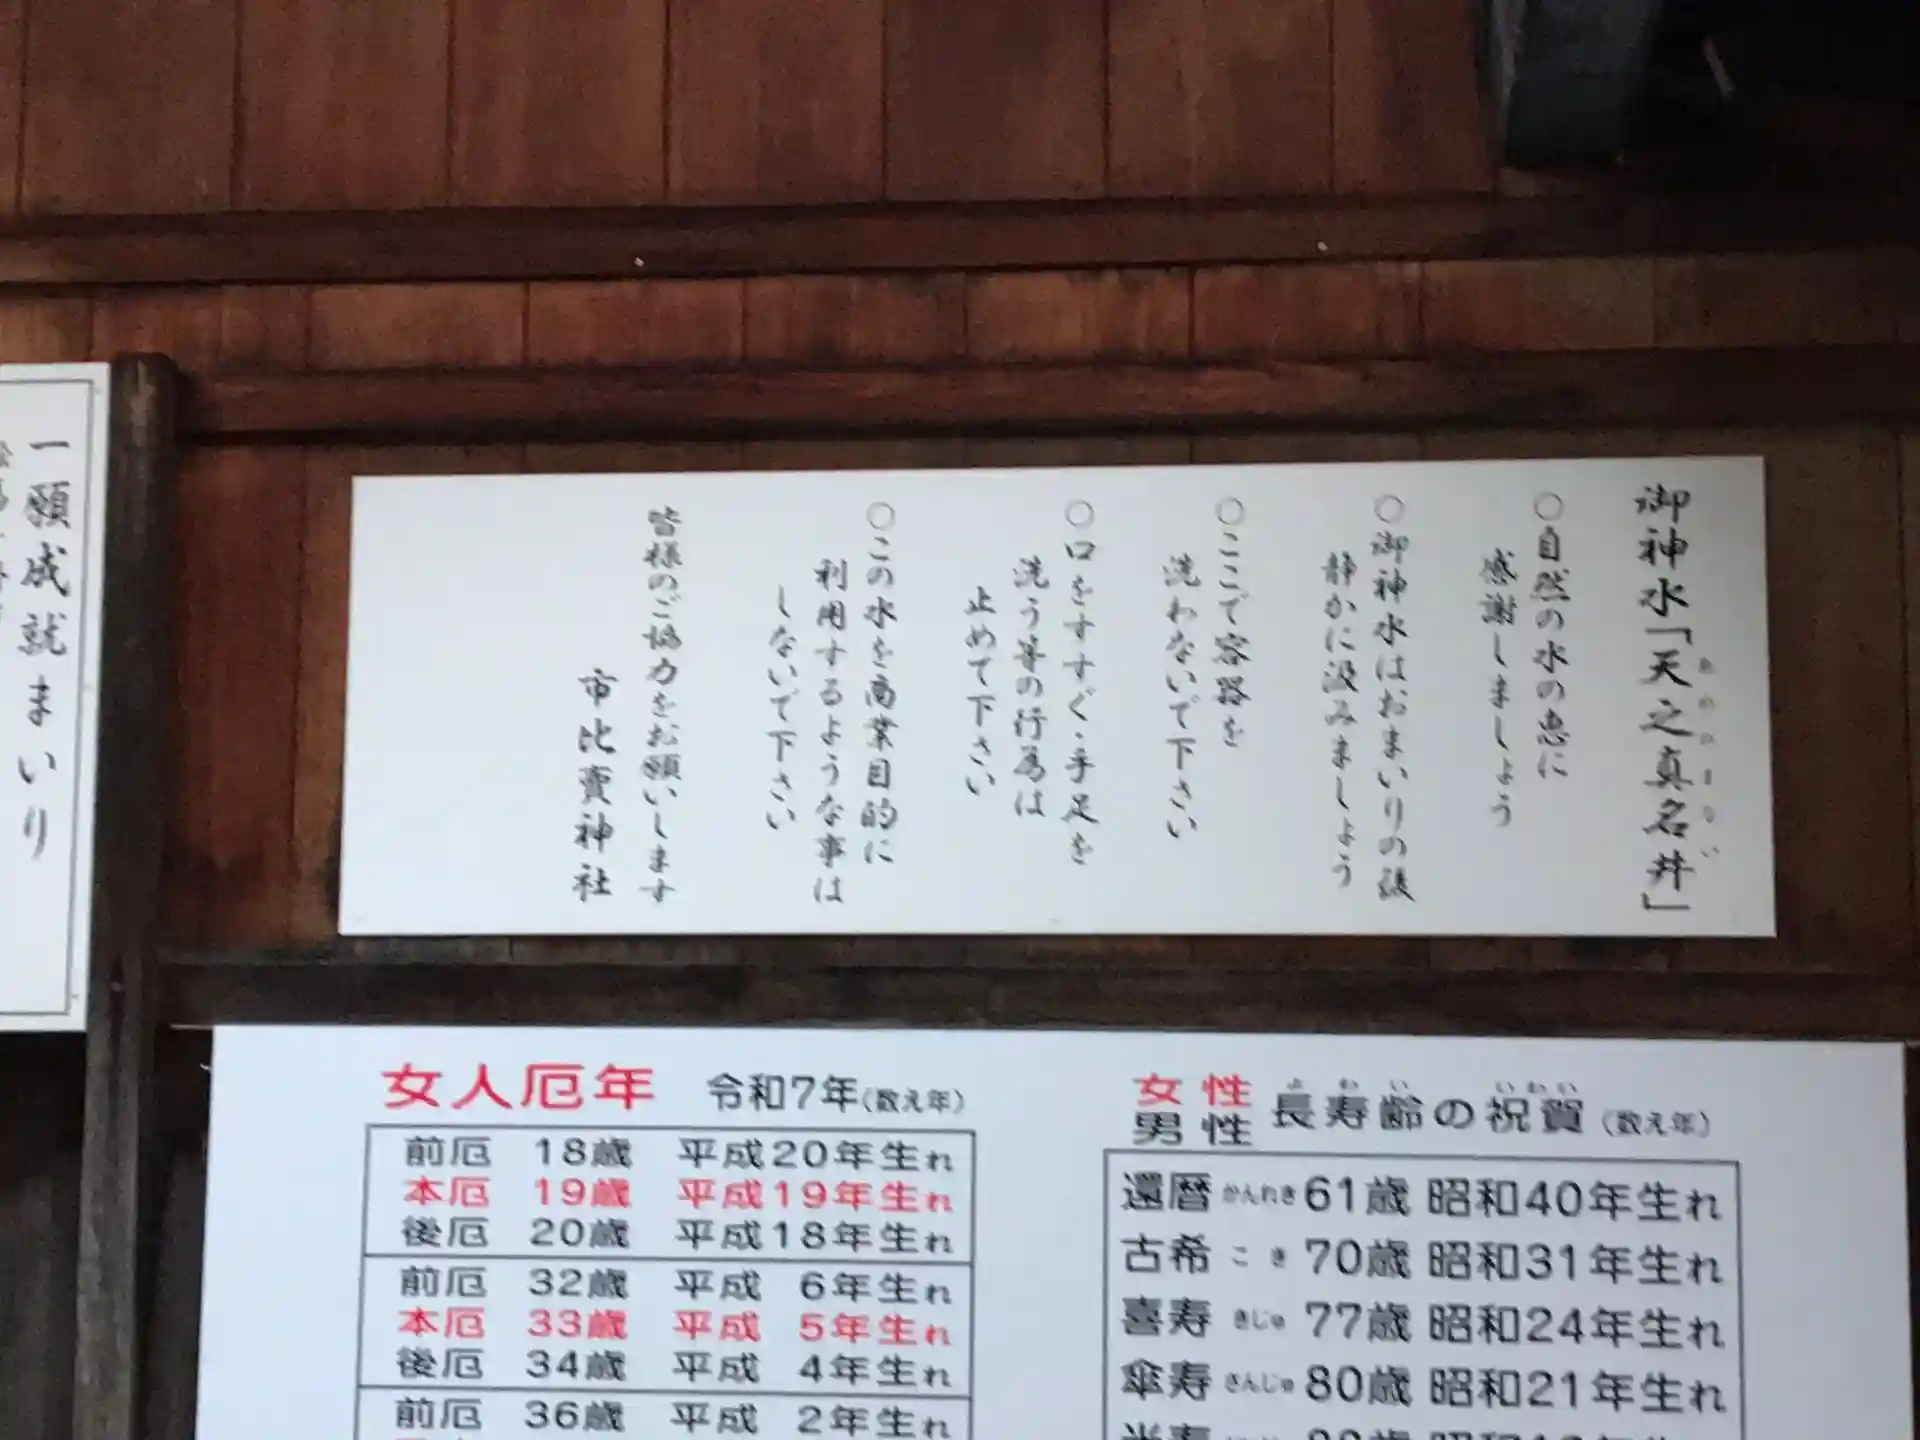 御神水「天之真名井」
あめのまない
○自然の水の恵に
感謝しましょう
○御神水はおまいりの後
静かに汲みましょう
○ここで容器を
洗わないで下さい
○口をすすぐ・手足を
洗う等の行為は
止めて下さい
○この水を商業目的に
利用するような事は
しないで下さい
皆様のご協力をお願いします
市比賣神社
一願成就まいり
女人厄年 令和7年(数え年)
前厄 18歳 平成20年生れ
本厄 19歳 平成19年生れ
後厄 20歳 平成18年生れ
前厄 32歳 平成 6年生れ
本厄 33歳 平成 5年生れ
後厄 34歳 平成 4年生れ
前厄 36歳 平成 2年生れ
女性
男性
よわい いわい
長寿齢の祝賀(数え年)
還暦 かんれき 61歳 昭和40年生れ
古希 こき 70歳 昭和31年生れ
喜寿 きじゅ 77歳 昭和24年生れ
傘寿 さんじゅ 80歳 昭和21年生れ